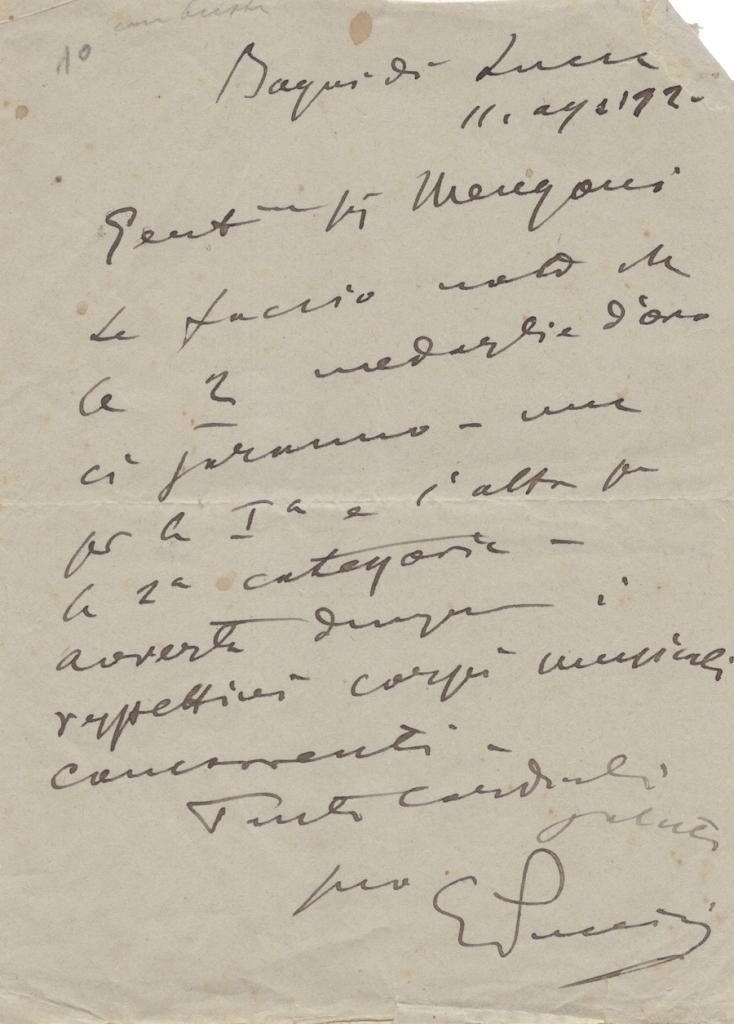 10 con busta
Bagni di Lucca
11. ag. 192-
Gent.mo Sig Mengoni
Le faccio noto che
le 2 medaglie d'oro
ci saranno - una
per la Iª e l'altra per
la 2ª categoria -
avverta dunque i
rispettivi corpi musicali
concorrenti -
Tanti cordiali
saluti
suo E Puccini